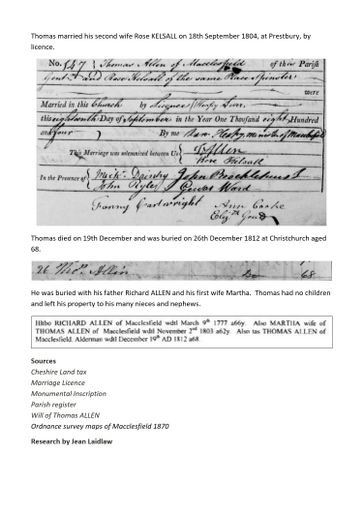 Thomas married his second wife Rose KELSALL on 18th September 1804, at Prestbury, by
licence.
No. 547 Thomas Allen of Macclesfield of this Parish
Gent and Rose Kelsall of the same Place Spinster
were
Married in this Church by Licence
this eighteenth Day of September in the Year One Thousand eight Hundred
and four By me
This Marriage was solemnized between Us T Allen
Rose Kelsall
In the Presence of John Brocklehurst
John Ryle Ward
Fanny Cartwright Ann Cooke
Thomas died on 19th December and was buried on 26th December 1812 at Christchurch aged
68.
26 Thos. Allen 68
He was buried with his father Richard ALLEN and his first wife Martha. Thomas had no children
and left his property to his many nieces and nephews.
RICHARD ALLEN of Macclesfield wdtl March 9th 1777 a66y. Also MARTHA wife of
THOMAS ALLEN of Macclesfield wdtl November 2nd 1803 a62y. Also tas THOMAS ALLEN of
Macclesfield. Alderman wdtl December 19th AD 1812 a68.
Sources
Cheshire Land tax
Marriage Licence
Monumental Inscription
Parish register
Will of Thomas ALLEN
Ordnance survey maps of Macclesfield 1870
Research by Jean Laidlaw